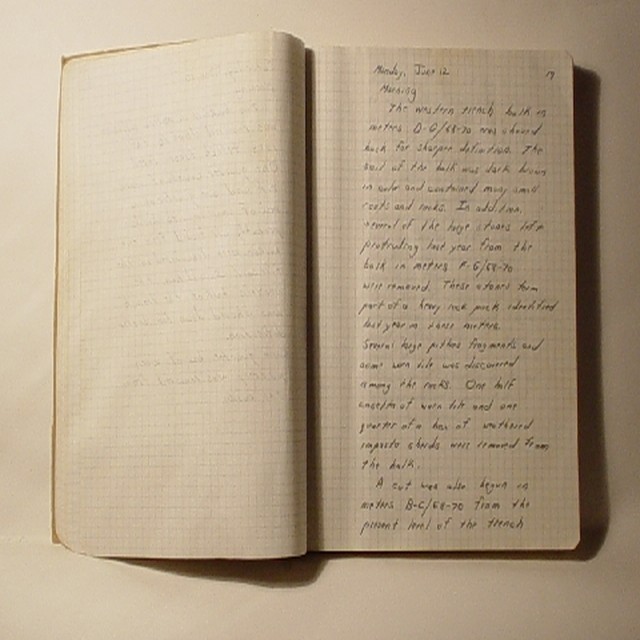 Monday, June 12 19
Morning
The western trench bulk in
meters D-G/68-70 was shaved
back for sharper definition. The
soil of the bulk was dark brown
in color and contained many small
roots and rocks. In addition,
several of the large stones left
protruding last year from the
bulk in meters F-G/68-70
were removed. These stones form
part of a heavy rock pack identified
last year in these meters.
Several large pithos fragments and
some worn tile was discovered
among the rocks. One half
cassetta of worn tile and one
quarter of a box of weathered
impasto sherds were removed from
the bulk.
A cut was also begun in
meters B-C/68-70 from the
present level of the trench